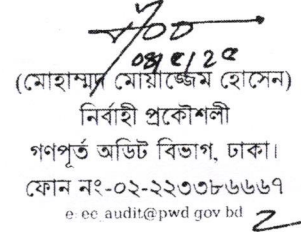 ০৪/৫/২৫
(মোহাম্মদ মোয়াজ্জেম হোসেন)
নির্বাহী প্রকৌশলী
গণপূর্ত অডিট বিভাগ, ঢাকা।
ফোন নং-০২-২২৩৩৮৬৬৬৭
e ec_audit@pwd gov bd